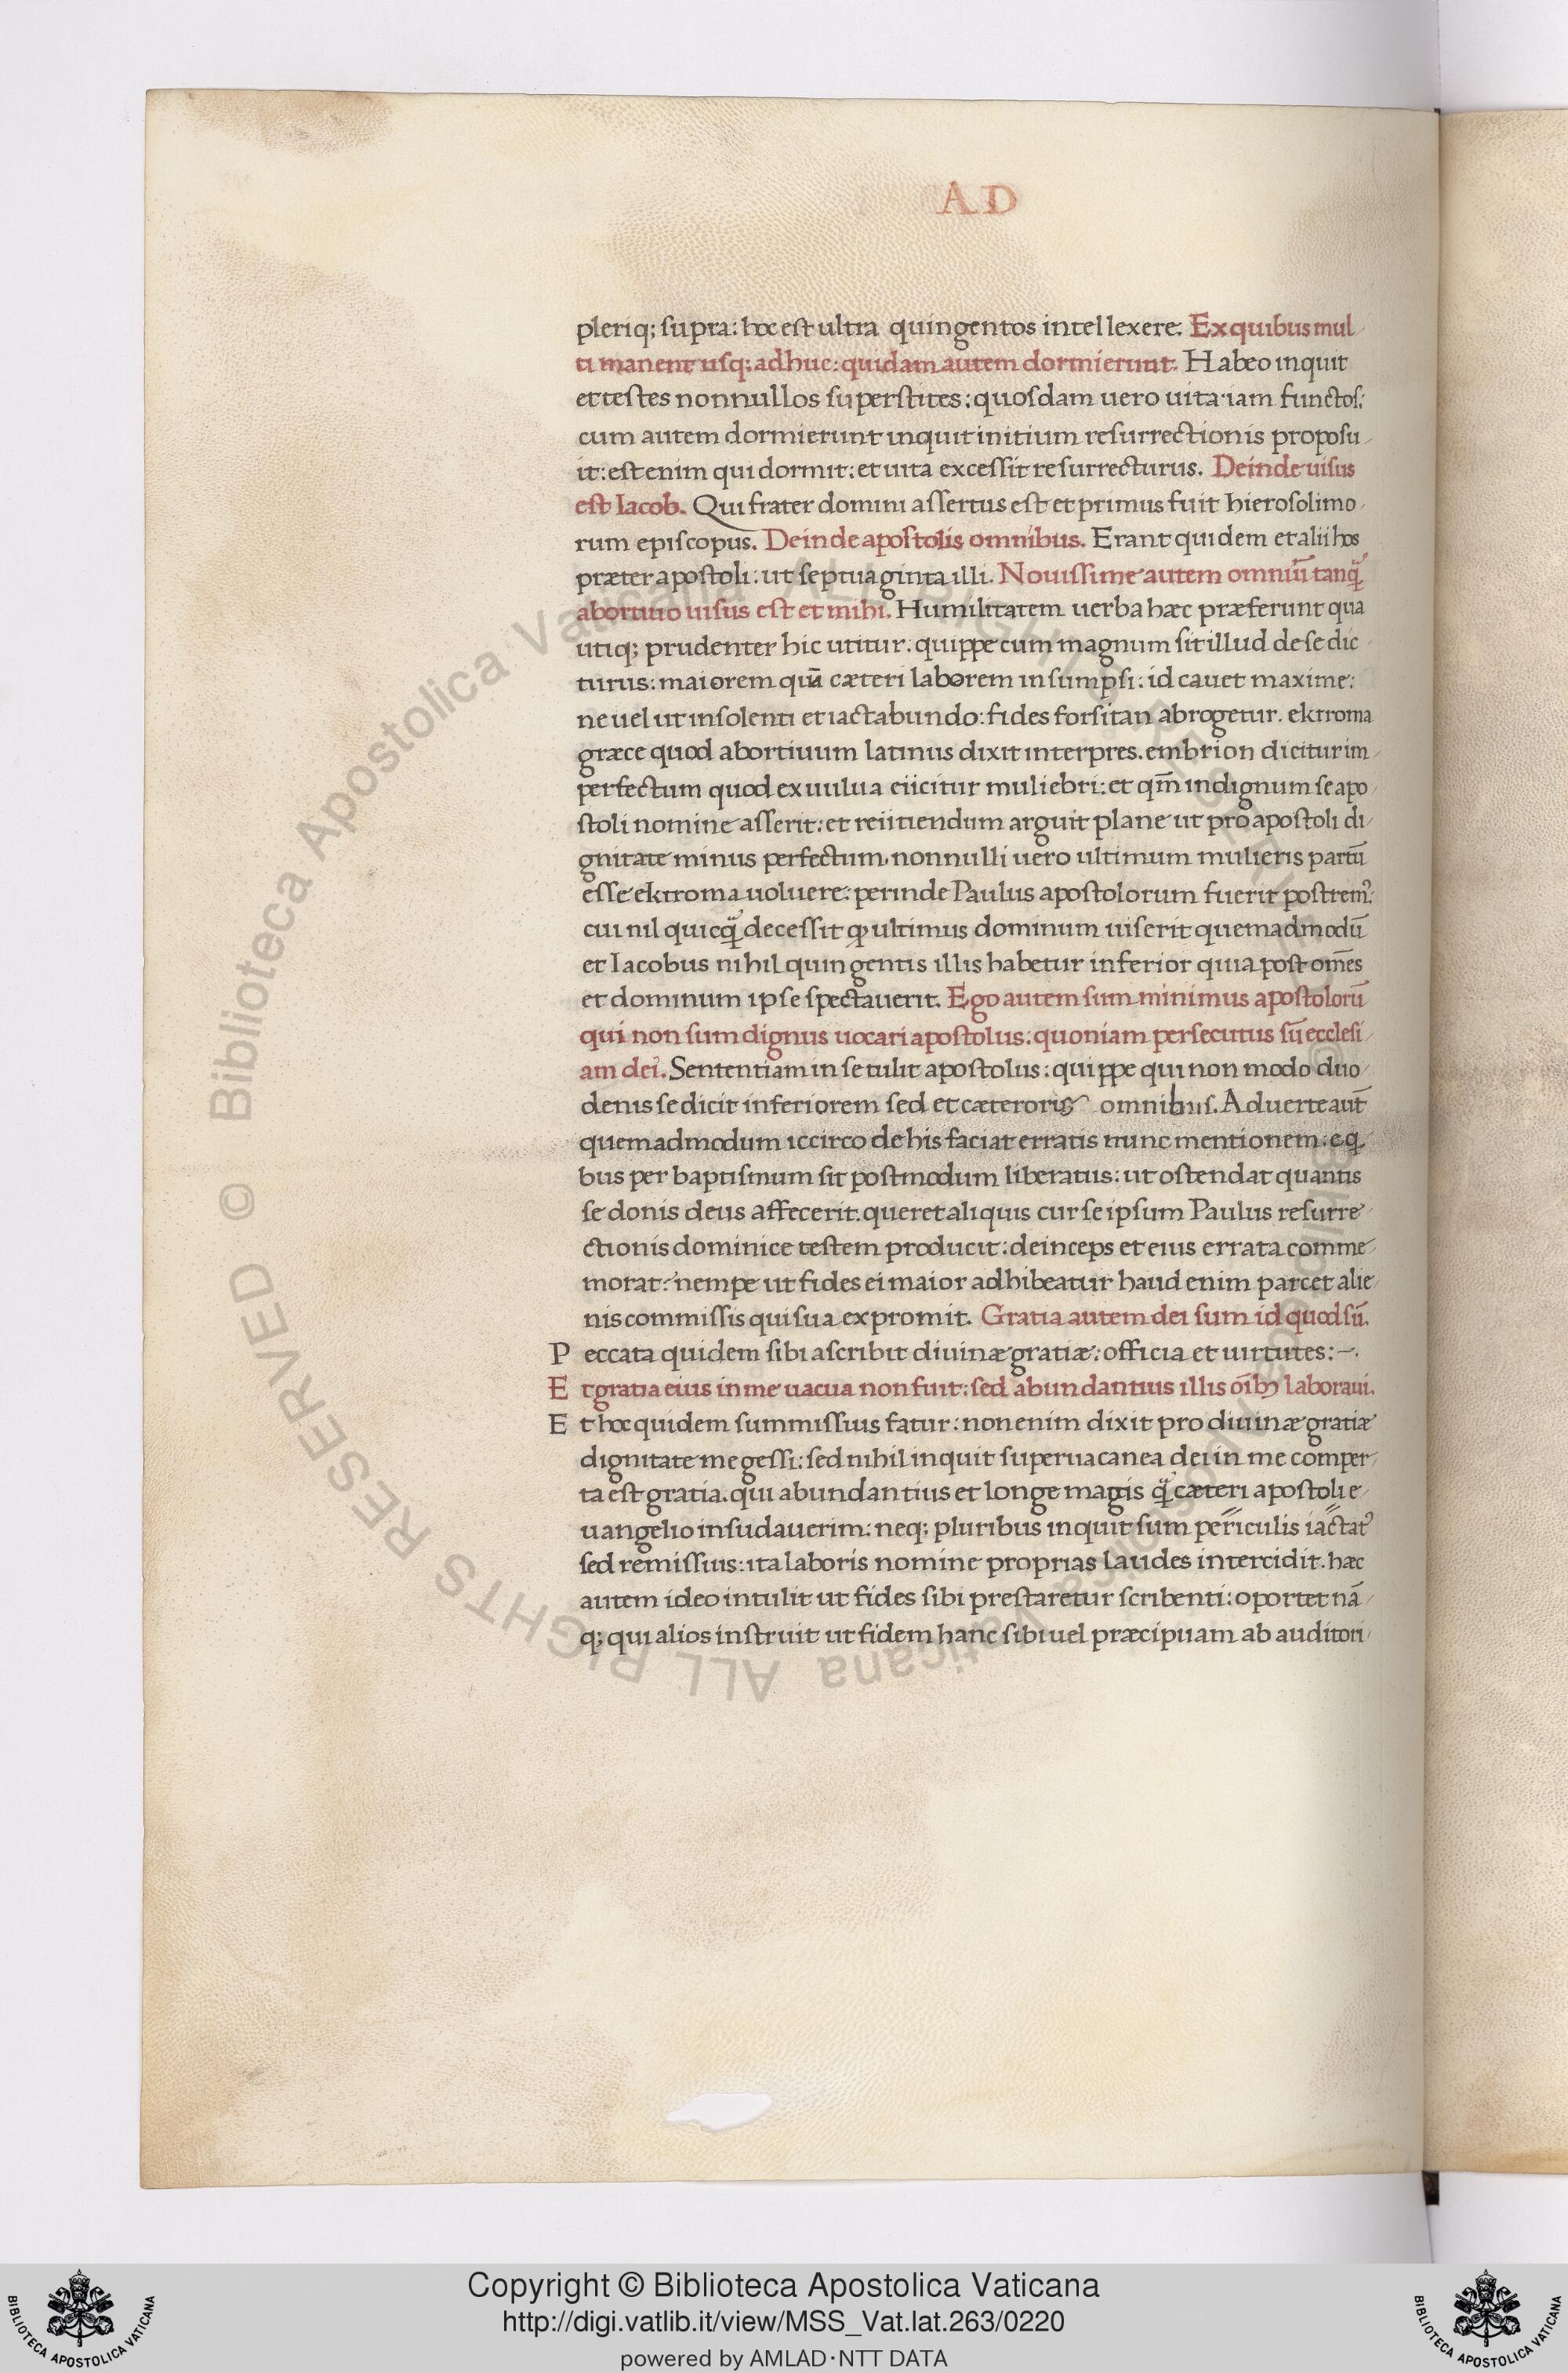 A D
pleriq; supra: hoc est ultra quingentos intellexere. Ex quibus mul
ti manent usq; adhuc: quidam autem dormierunt. Habeo inquit
et testes nonnullos superstites: quosdam uero uita iam functos:
cum autem dormierunt inquit initium resurrectionis proposu
it: est enim qui dormit: et uita excessit resurrecturus. Deinde uisus
est Iacob. Qui frater domini assertus est et primus fuit hierosolimo
rum episcopus. Deinde apostolis omnibus. Erant quidem et alii hos
præter apostoli: ut septuaginta illi. Nouissime autem omniū tanq̃
abortiuo uisus est et mihi. Humilitatem uerba hæc præferunt qua
utiq; prudenter hic utitur: quippe cum magnum sit illud de se dic
turus: maiorem quā cæteri laborem insumpsi: id cauet maxime:
ne uel ut insolenti et iactabundo: fides forsitan abrogetur. ektroma
græce quod abortiuum latinus dixit interpres. embrion dicitur im
perfectum quod ex uulua eiicitur muliebri: et qm̄ indignum se apo
stoli nomine asserit: et reiitiendum arguit plane ut pro apostoli di
gnitate minus perfectum. nonnulli uero ultimum mulieris partū
esse ektroma uoluere: perinde Paulus apostolorum fuerit postrem⁹:
cui nil quicq̃ decessit ꝙ ultimus dominum uiserit quemadmodū
et Iacobus nihil quingentis illis habetur inferior quia post om̄es
et dominum ipse spectauerit. Ego autem sum minimus apostolorū
qui non sum dignus uocari apostolus: quoniam persecutus sū ecclesi
am dei. Sententiam in se tulit apostolus: quippe qui non modo duo
denis se dicit inferiorem sed et cæteroris omnibus. Aduerte aut̄
quemadmodum iccirco de his faciat erratis nunc mentionem: e q̣
bus per baptismum sit postmodum liberatus: ut ostendat quantis
se donis deus affecerit. queret aliquis cur se ipsum Paulus resurre
ctionis dominice testem producit: deinceps et eius errata comme
morat: nempe ut fides ei maior adhibeatur haud enim parcet alie
nis commissis qui sua expromit. Gratia autem dei sum id quod sū.
P eccata quidem sibi ascribit diuinæ gratiæ: officia et uirtutes: ~.
E t gratia eius in me uacua non fuit: sed abundantius illis oīb3 laboraui.
E t hoc quidem summissius fatur: non enim dixit pro diuinæ gratiæ
dignitate me gessi: sed nihil inquit superuacanea dei in me comper
ta est gratia. qui abundantius et longe magis q̃ cæteri apostoli e
uangelio insudauerim: neq; pluribus inquit sum periculis iactat⁹
sed remissius: ita laboris nomine proprias laudes intercidit. hæc
autem ideo intulit ut fides sibi prestaretur scribenti: oportet nā
q; qui alios instruit ut fidem hanc sibi uel præcipuam ab auditori
© Biblioteca Apostolica Vaticana ALL RIGHTS RESERVED © Biblioteca Apostolica Vaticana ALL RIGHTS RESERVED
Copyright © Biblioteca Apostolica Vaticana
http://digi.vatlib.it/view/MSS_Vat.lat.263/0220
powered by AMLAD·NTT DATA
BIBLIOTECA APOSTOLICA VATICANA
BIBLIOTECA APOSTOLICA VATICANA